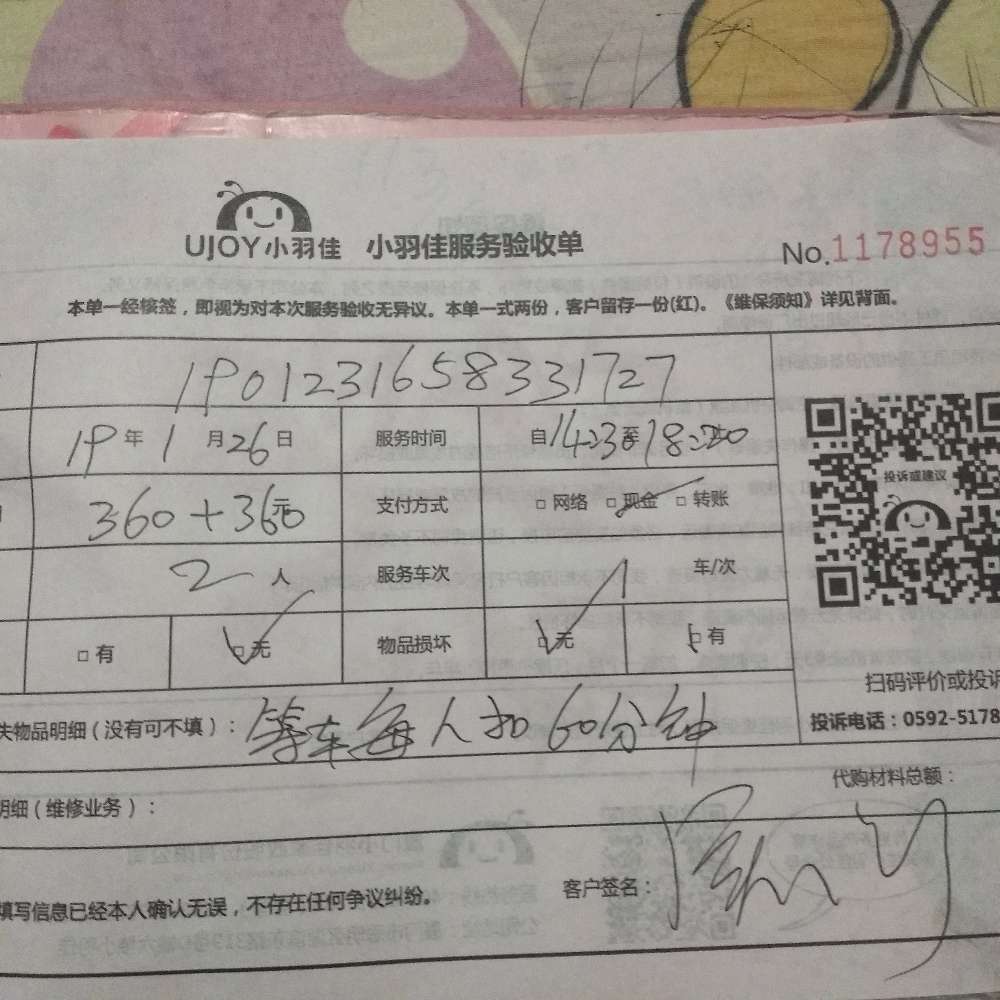 UJOY小羽佳 小羽佳服务验收单 No.1178955
本单一经核签，即视为对本次服务验收无异议。本单一式两份，客户留存一份(红)。《维保须知》详见背面。
1901231658331727
19年1月26日 服务时间 自14:23至18:
360+360元 支付方式 □网络 □现金 □转账
2人 服务车次 1车/次
□有 □无 物品损坏 □无 □有
投诉或建议
扫码评价或投诉
投诉电话：0592-5178
失物品明细（没有可不填）：等车每人扣60分钟
明细（维修业务）： 代购材料总额：
填写信息已经本人确认无误，不存在任何争议纠纷。 客户签名：